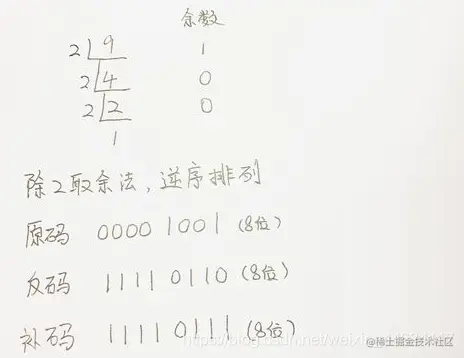 余数
2 9 1
2 4 0
2 2 0
1
除2取余法，逆序排列
原码 0000 1001 (8位)
反码 1111 0110 (8位)
补码 1111 0111 (8位)
@稀土掘金技术社区